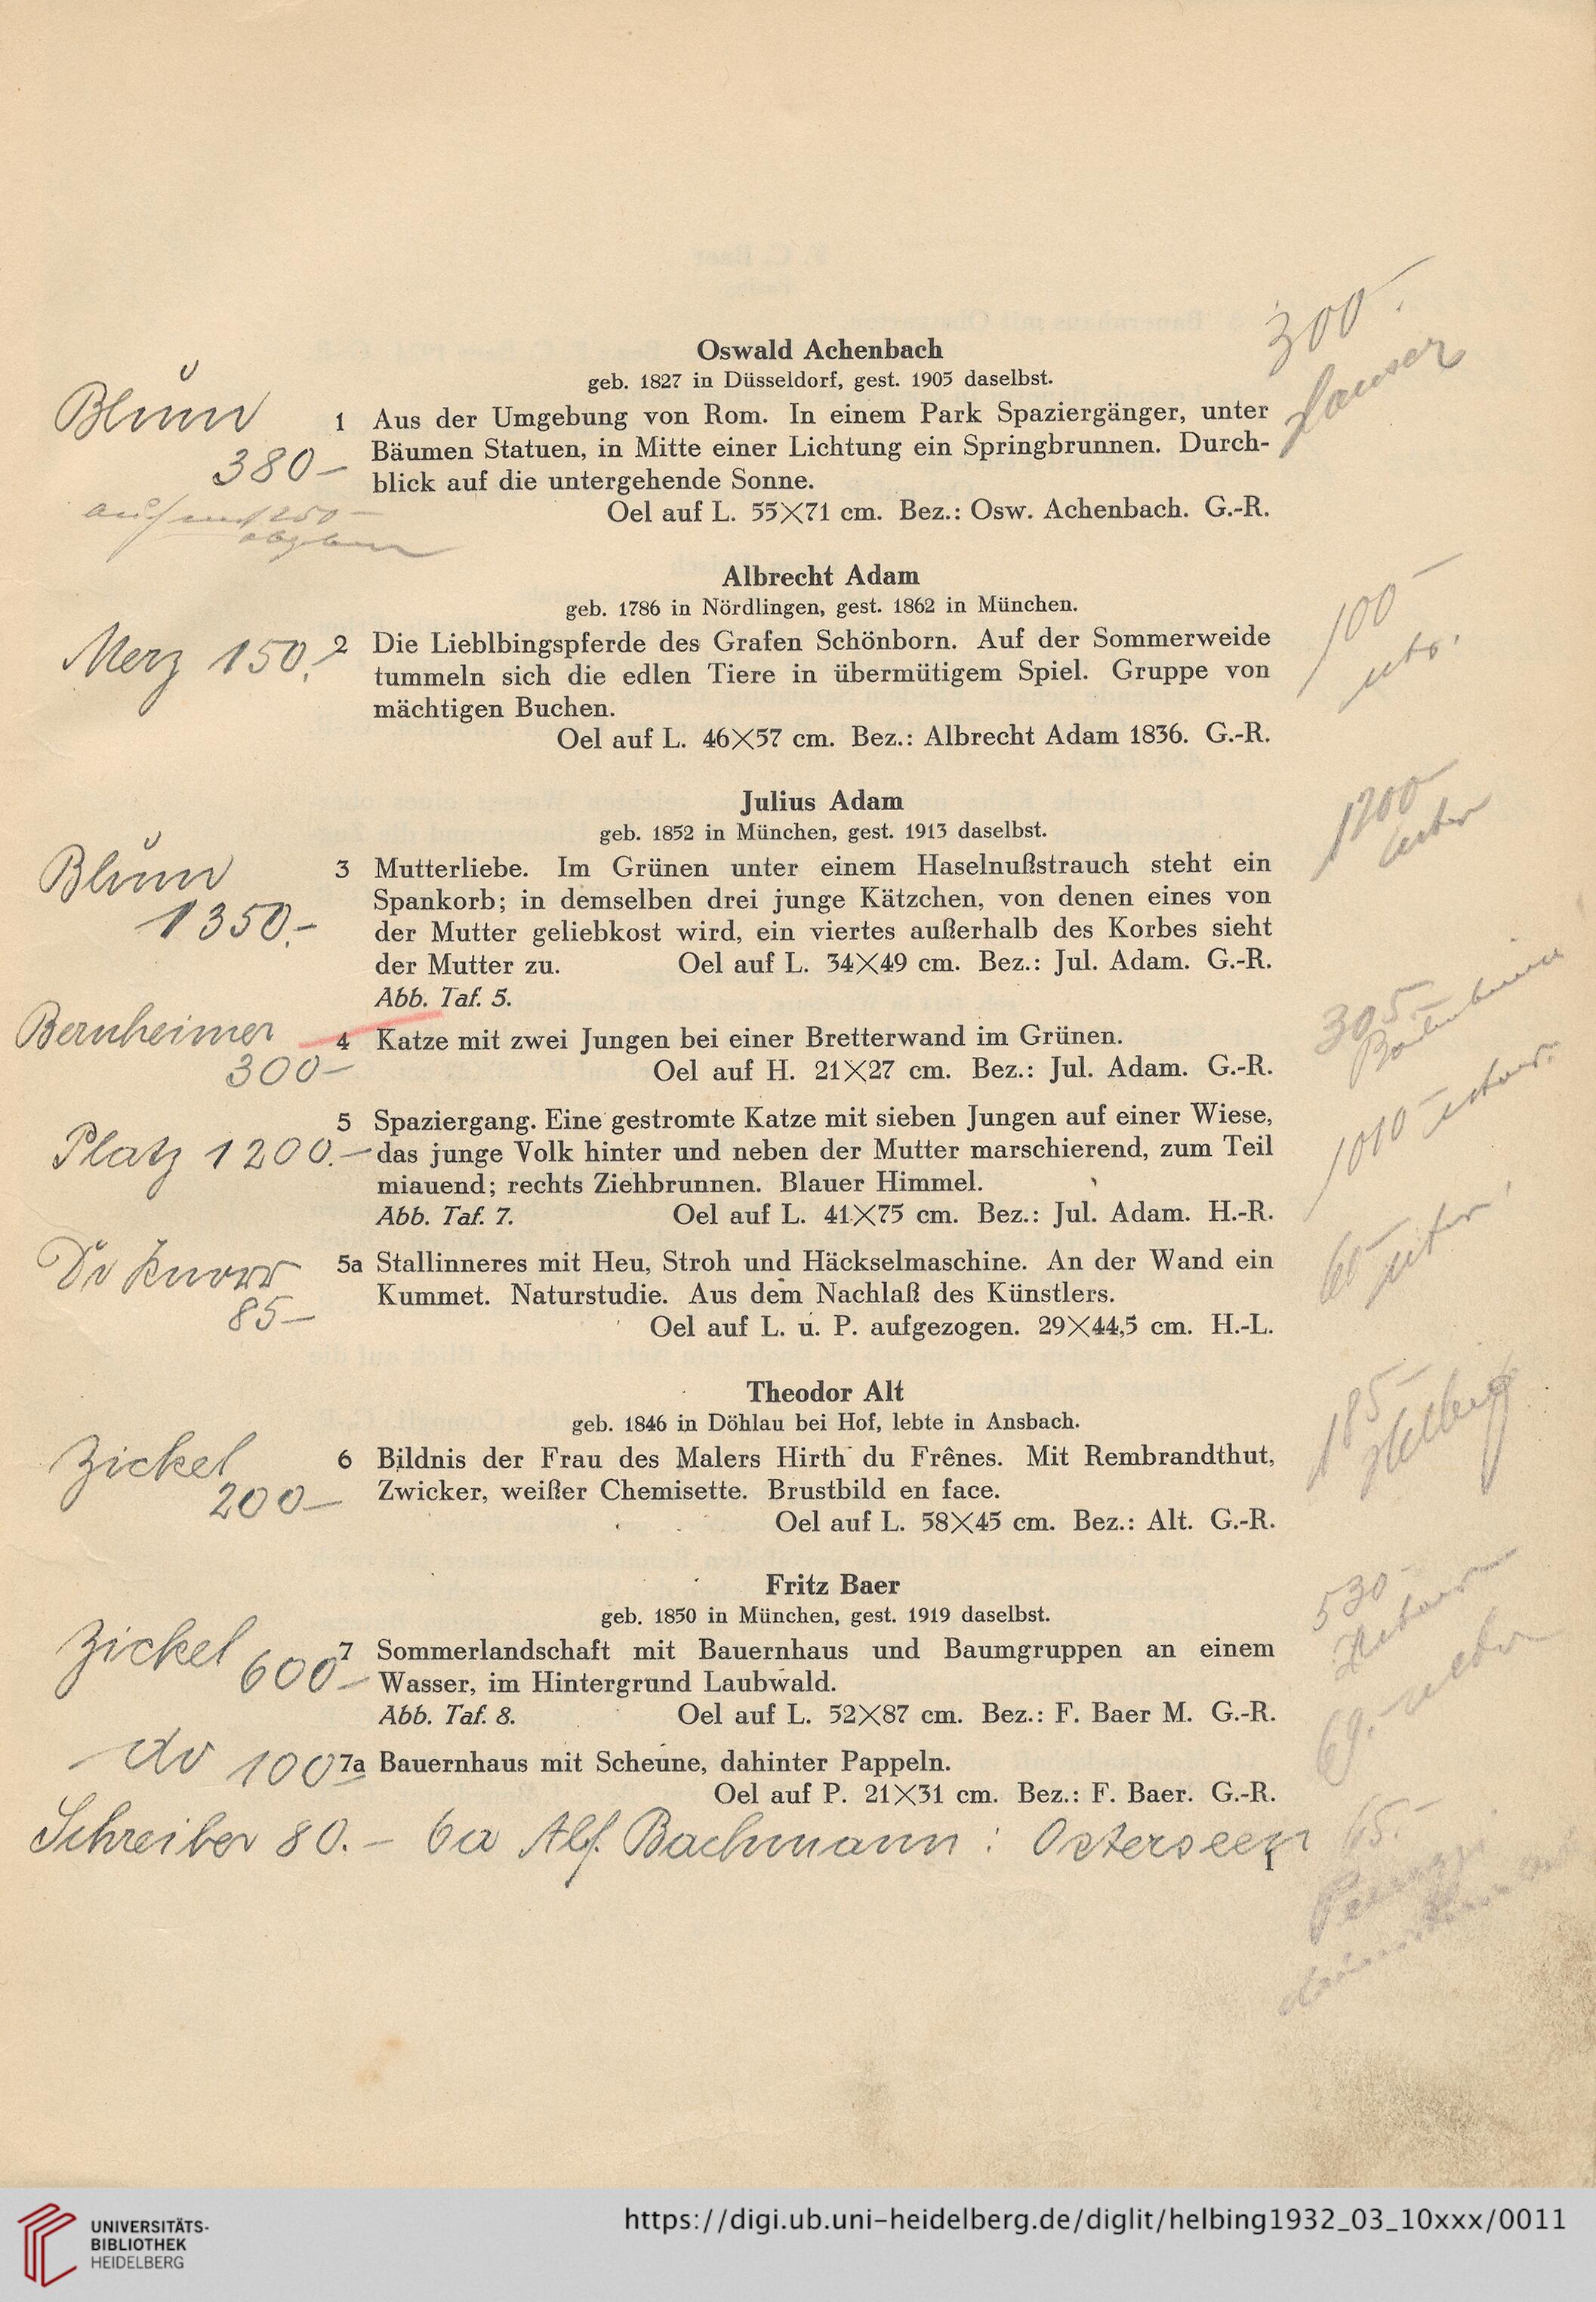 300.-
Oswald Achenbach
geb. 1827 in Düsseldorf, gest. 1905 daselbst.
Blum
1 Aus der Umgebung von Rom. In einem Park Spaziergänger, unter
380-
Bäumen Statuen, in Mitte einer Lichtung ein Springbrunnen. Durch-
blick auf die untergehende Sonne.
Oel auf L. 55×71 cm. Bez.: Osw. Achenbach. G.-R.
Albrecht Adam
geb. 1786 in Nördlingen, gest. 1862 in München.
100-
Merz 150.-
2 Die Lieblbingspferde des Grafen Schönborn. Auf der Sommerweide
tummeln sich die edlen Tiere in übermütigem Spiel. Gruppe von
mächtigen Buchen.
Oel auf L. 46×57 cm. Bez.: Albrecht Adam 1836. G.-R.
Julius Adam
1200-
geb. 1852 in München, gest. 1913 daselbst.
Blum
3 Mutterliebe. Im Grünen unter einem Haselnußstrauch steht ein
1350.-
Spankorb; in demselben drei junge Kätzchen, von denen eines von
der Mutter geliebkost wird, ein viertes außerhalb des Korbes sieht
der Mutter zu. Oel auf L. 34×49 cm. Bez.: Jul. Adam. G.-R.
Abb. Taf. 5.
305.-
Bernheimer
4 Katze mit zwei Jungen bei einer Bretterwand im Grünen.
300-
Oel auf H. 21×27 cm. Bez.: Jul. Adam. G.-R.
5 Spaziergang. Eine gestromte Katze mit sieben Jungen auf einer Wiese,
1010
Platz 1200.-
das junge Volk hinter und neben der Mutter marschierend, zum Teil
miauend; rechts Ziehbrunnen. Blauer Himmel.
Abb. Taf. 7. Oel auf L. 41×75 cm. Bez.: Jul. Adam. H.-R.
60-
Dr Knorr
5a Stallinneres mit Heu, Stroh und Häckselmaschine. An der Wand ein
85-
Kummet. Naturstudie. Aus dem Nachlaß des Künstlers.
Oel auf L. u. P. aufgezogen. 29×44,5 cm. H.-L.
Theodor Alt
185-
geb. 1846 in Döhlau bei Hof, lebte in Ansbach.
Zickel
6 Bildnis der Frau des Malers Hirth du Frênes. Mit Rembrandthut,
Helbing
200-
Zwicker, weißer Chemisette. Brustbild en face.
Oel auf L. 58×45 cm. Bez.: Alt. G.-R.
Fritz Baer
530-
geb. 1850 in München, gest. 1919 daselbst.
Zickel 600-
7 Sommerlandschaft mit Bauernhaus und Baumgruppen an einem
Wasser, im Hintergrund Laubwald.
Abb. Taf. 8. Oel auf L. 52×87 cm. Bez.: F. Baer M. G.-R.
do 100-
7a Bauernhaus mit Scheune, dahinter Pappeln.
Oel auf P. 21×31 cm. Bez.: F. Baer. G.-R.
Schreiber 80.- 6a Alf. Bachmann: Osterseen
65.-
UNIVERSITÄTS-
BIBLIOTHEK
HEIDELBERG
https://digi.ub.uni-heidelberg.de/diglit/helbing1932_03_10xxx/0011